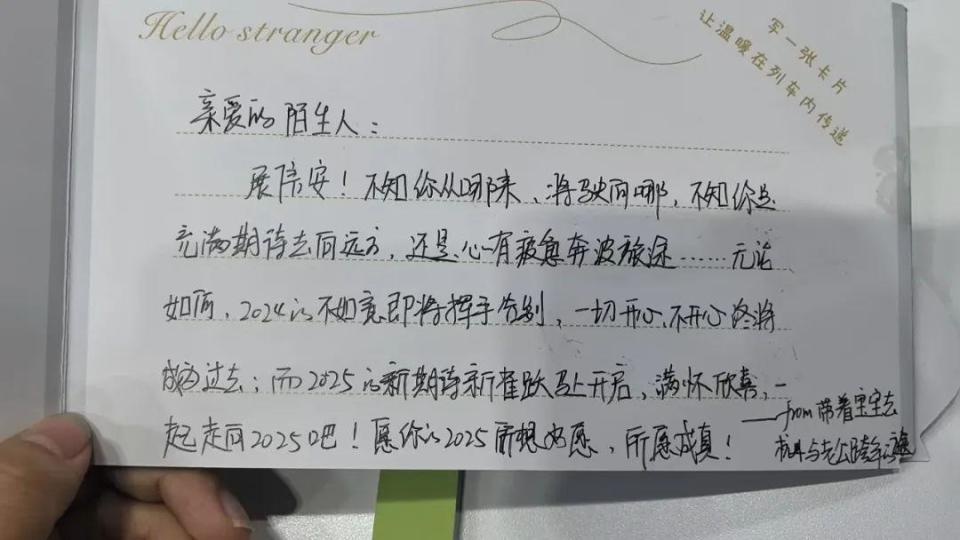 Hello stranger
写一张卡片
让温暖在列车内传递
亲爱的陌生人：
展信安！不知你从哪来、将驶向哪，不知你是
充满期待去向远方，还是心有疲惫奔波旅途……无论
如何，2024的不如意即将挥手告别，一切开心、不开心终将
成为过去；而2025的新期待新雀跃马上开启，满怀欣喜，一
起走向2025吧！愿你的2025所想如愿、所愿成真！
——from 带着宝宝去
杭州与老公跨年的